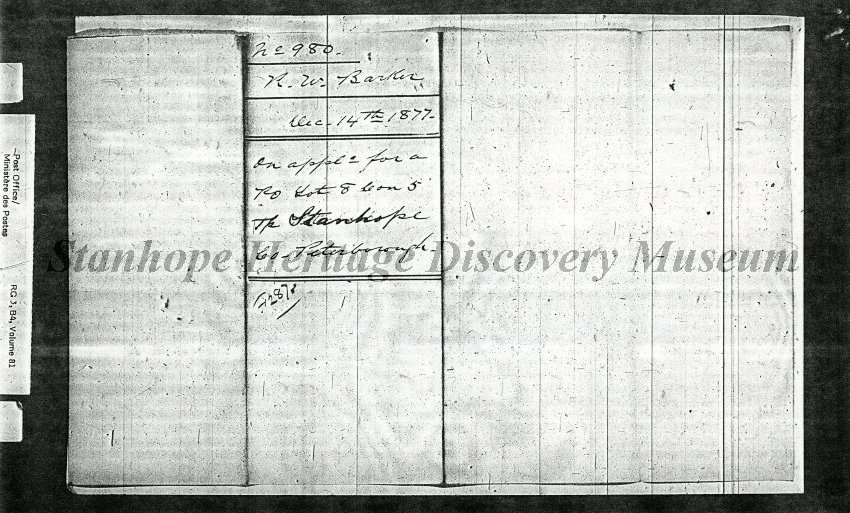 No 980.
R. W. Barker
Dec. 14th 1877.
On appln for a
PO Lot 8 Con 5
Tp Stanhope
Co. Peterborough
Stanhope Heritage Discovery Museum
Post Office/
Ministère des Postes
RG 3, B4, Volume 81